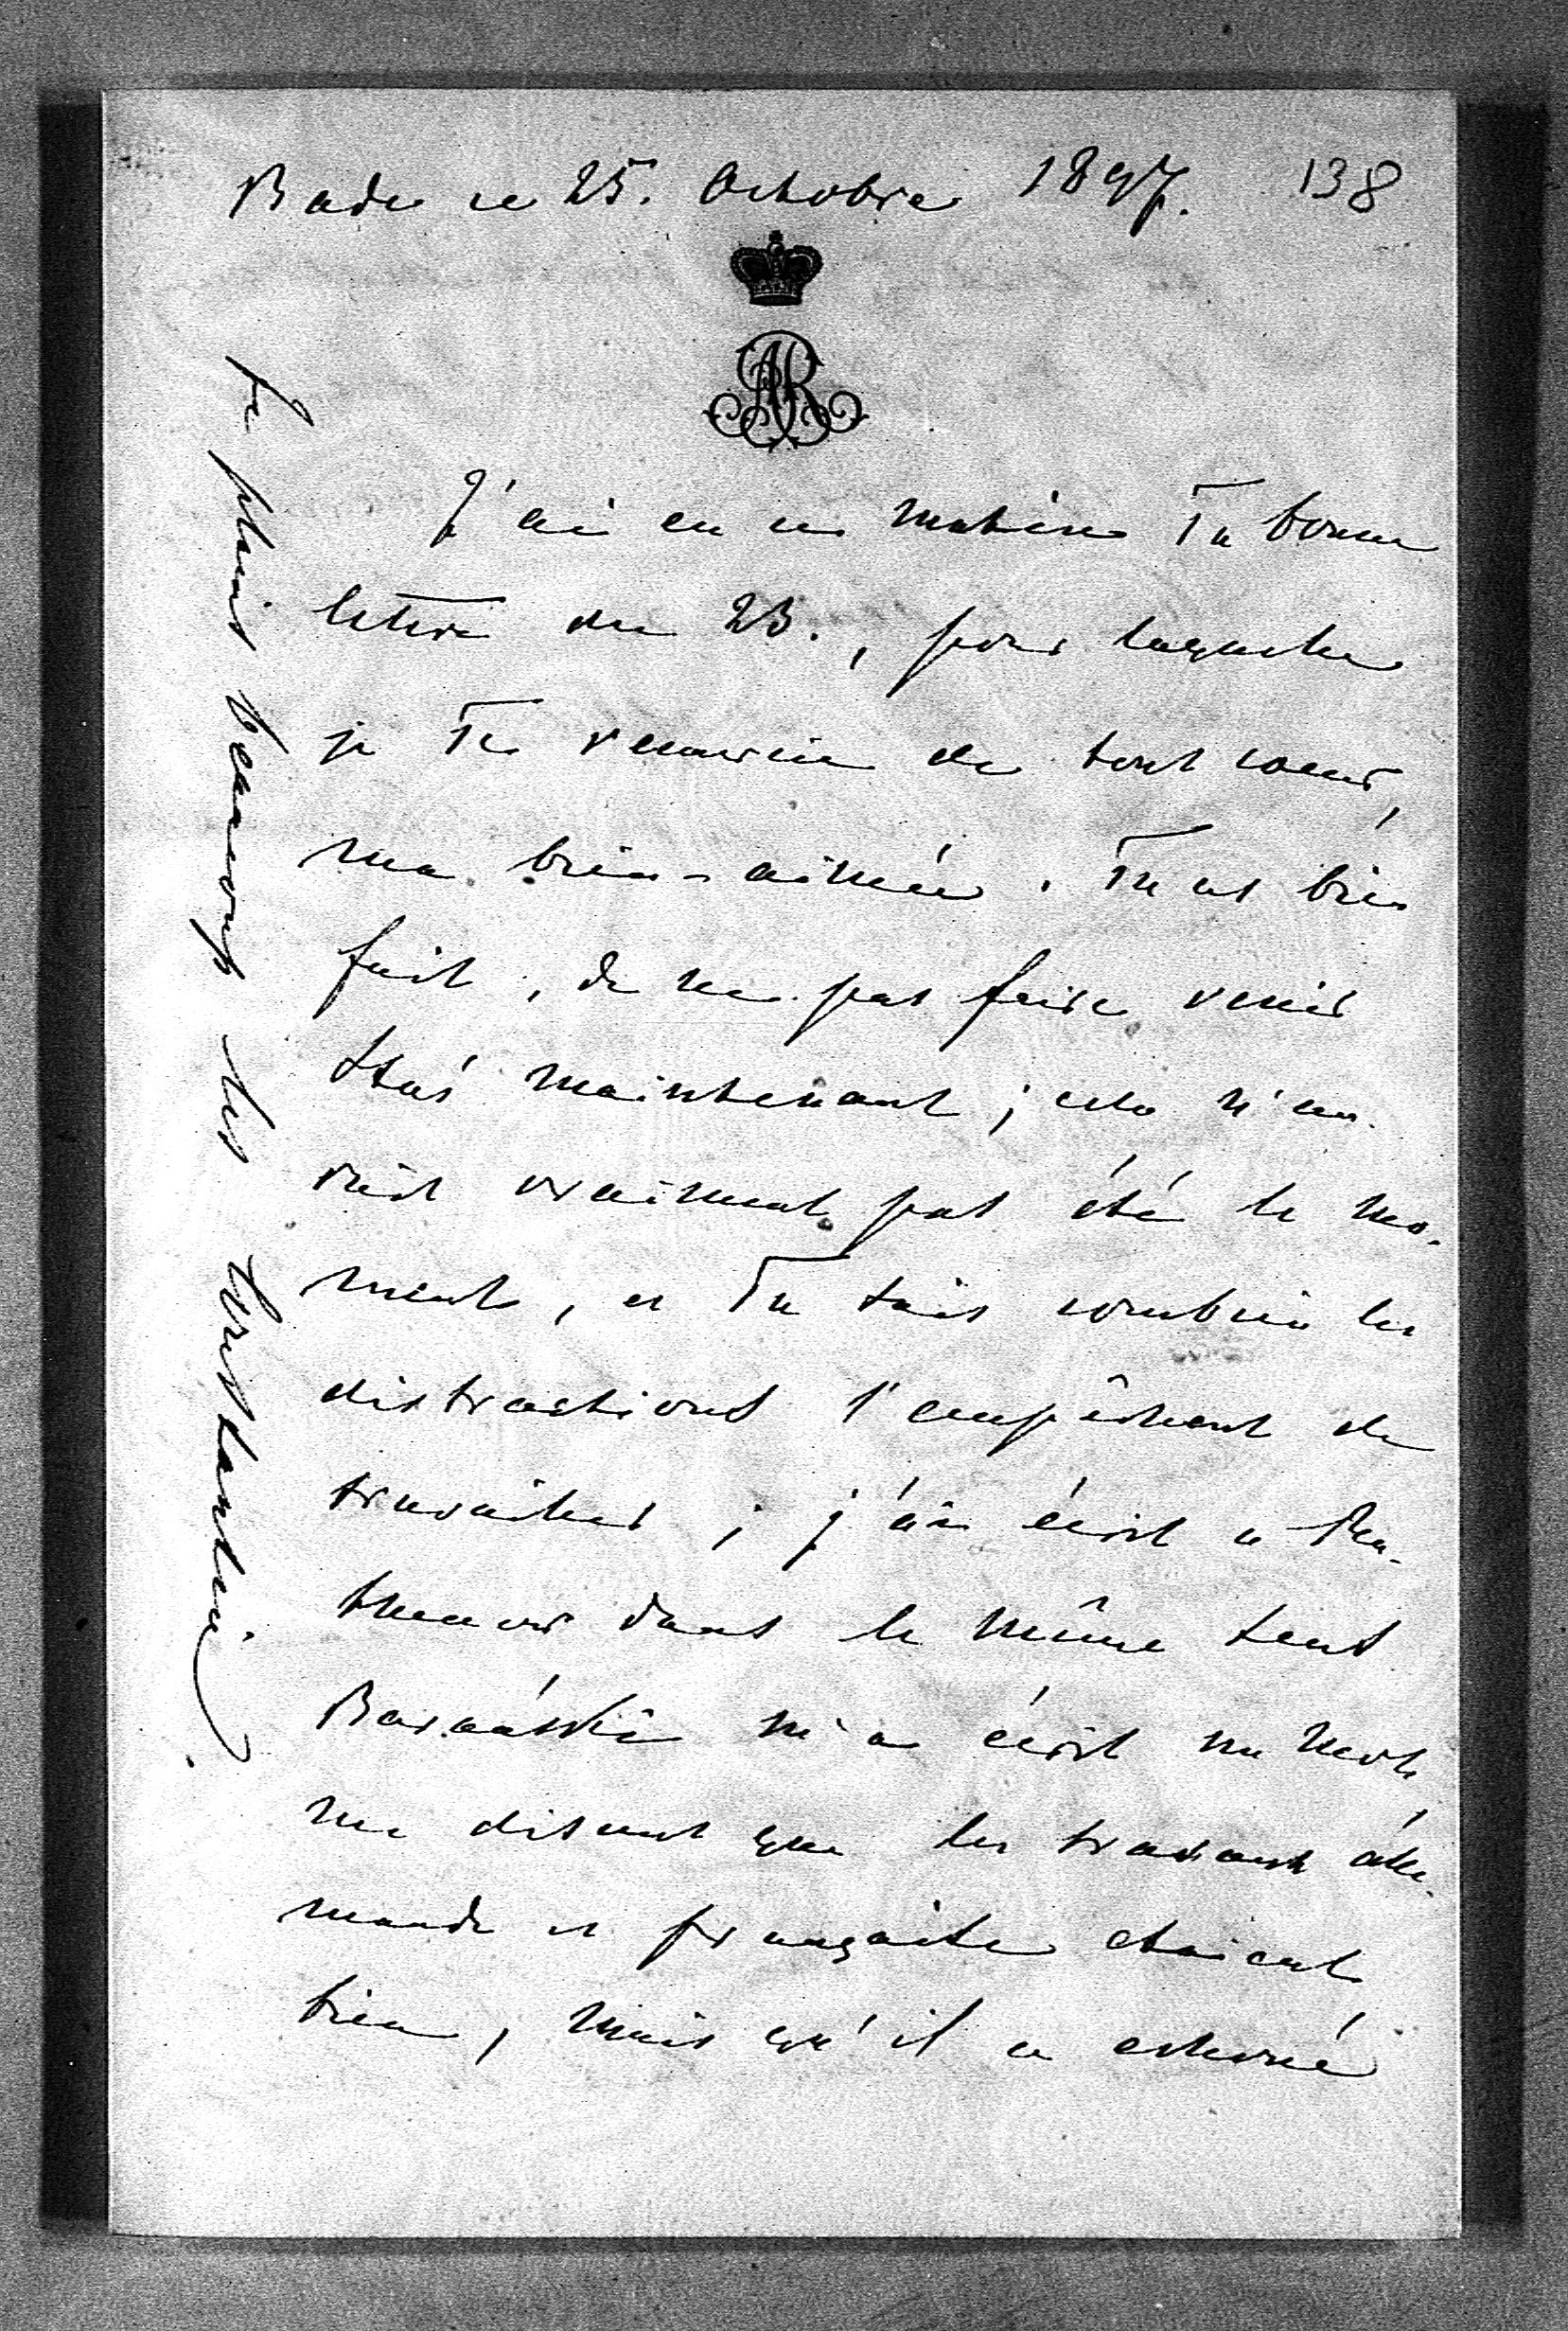 Bade ce 25. Octobre 1897. 138
AR
J'ai eu ce matin Ta bonne
lettre du 23., pour laquelle
je Te remercie de tout coeur,
ma bien-aimée. Tu as bien
fait, de ne pas faire venir
maintenant; cela n'au-
rait vraiment pas été le mo-
ment, et Tu sais combien les
distractions l'empêchent de
travailler; j'ai écrit à
dans le même sens
m'a écrit un mot
me disant que les travaux alle-
mande et française étaient
bien, mais qu'il a
Je plains beaucoup les